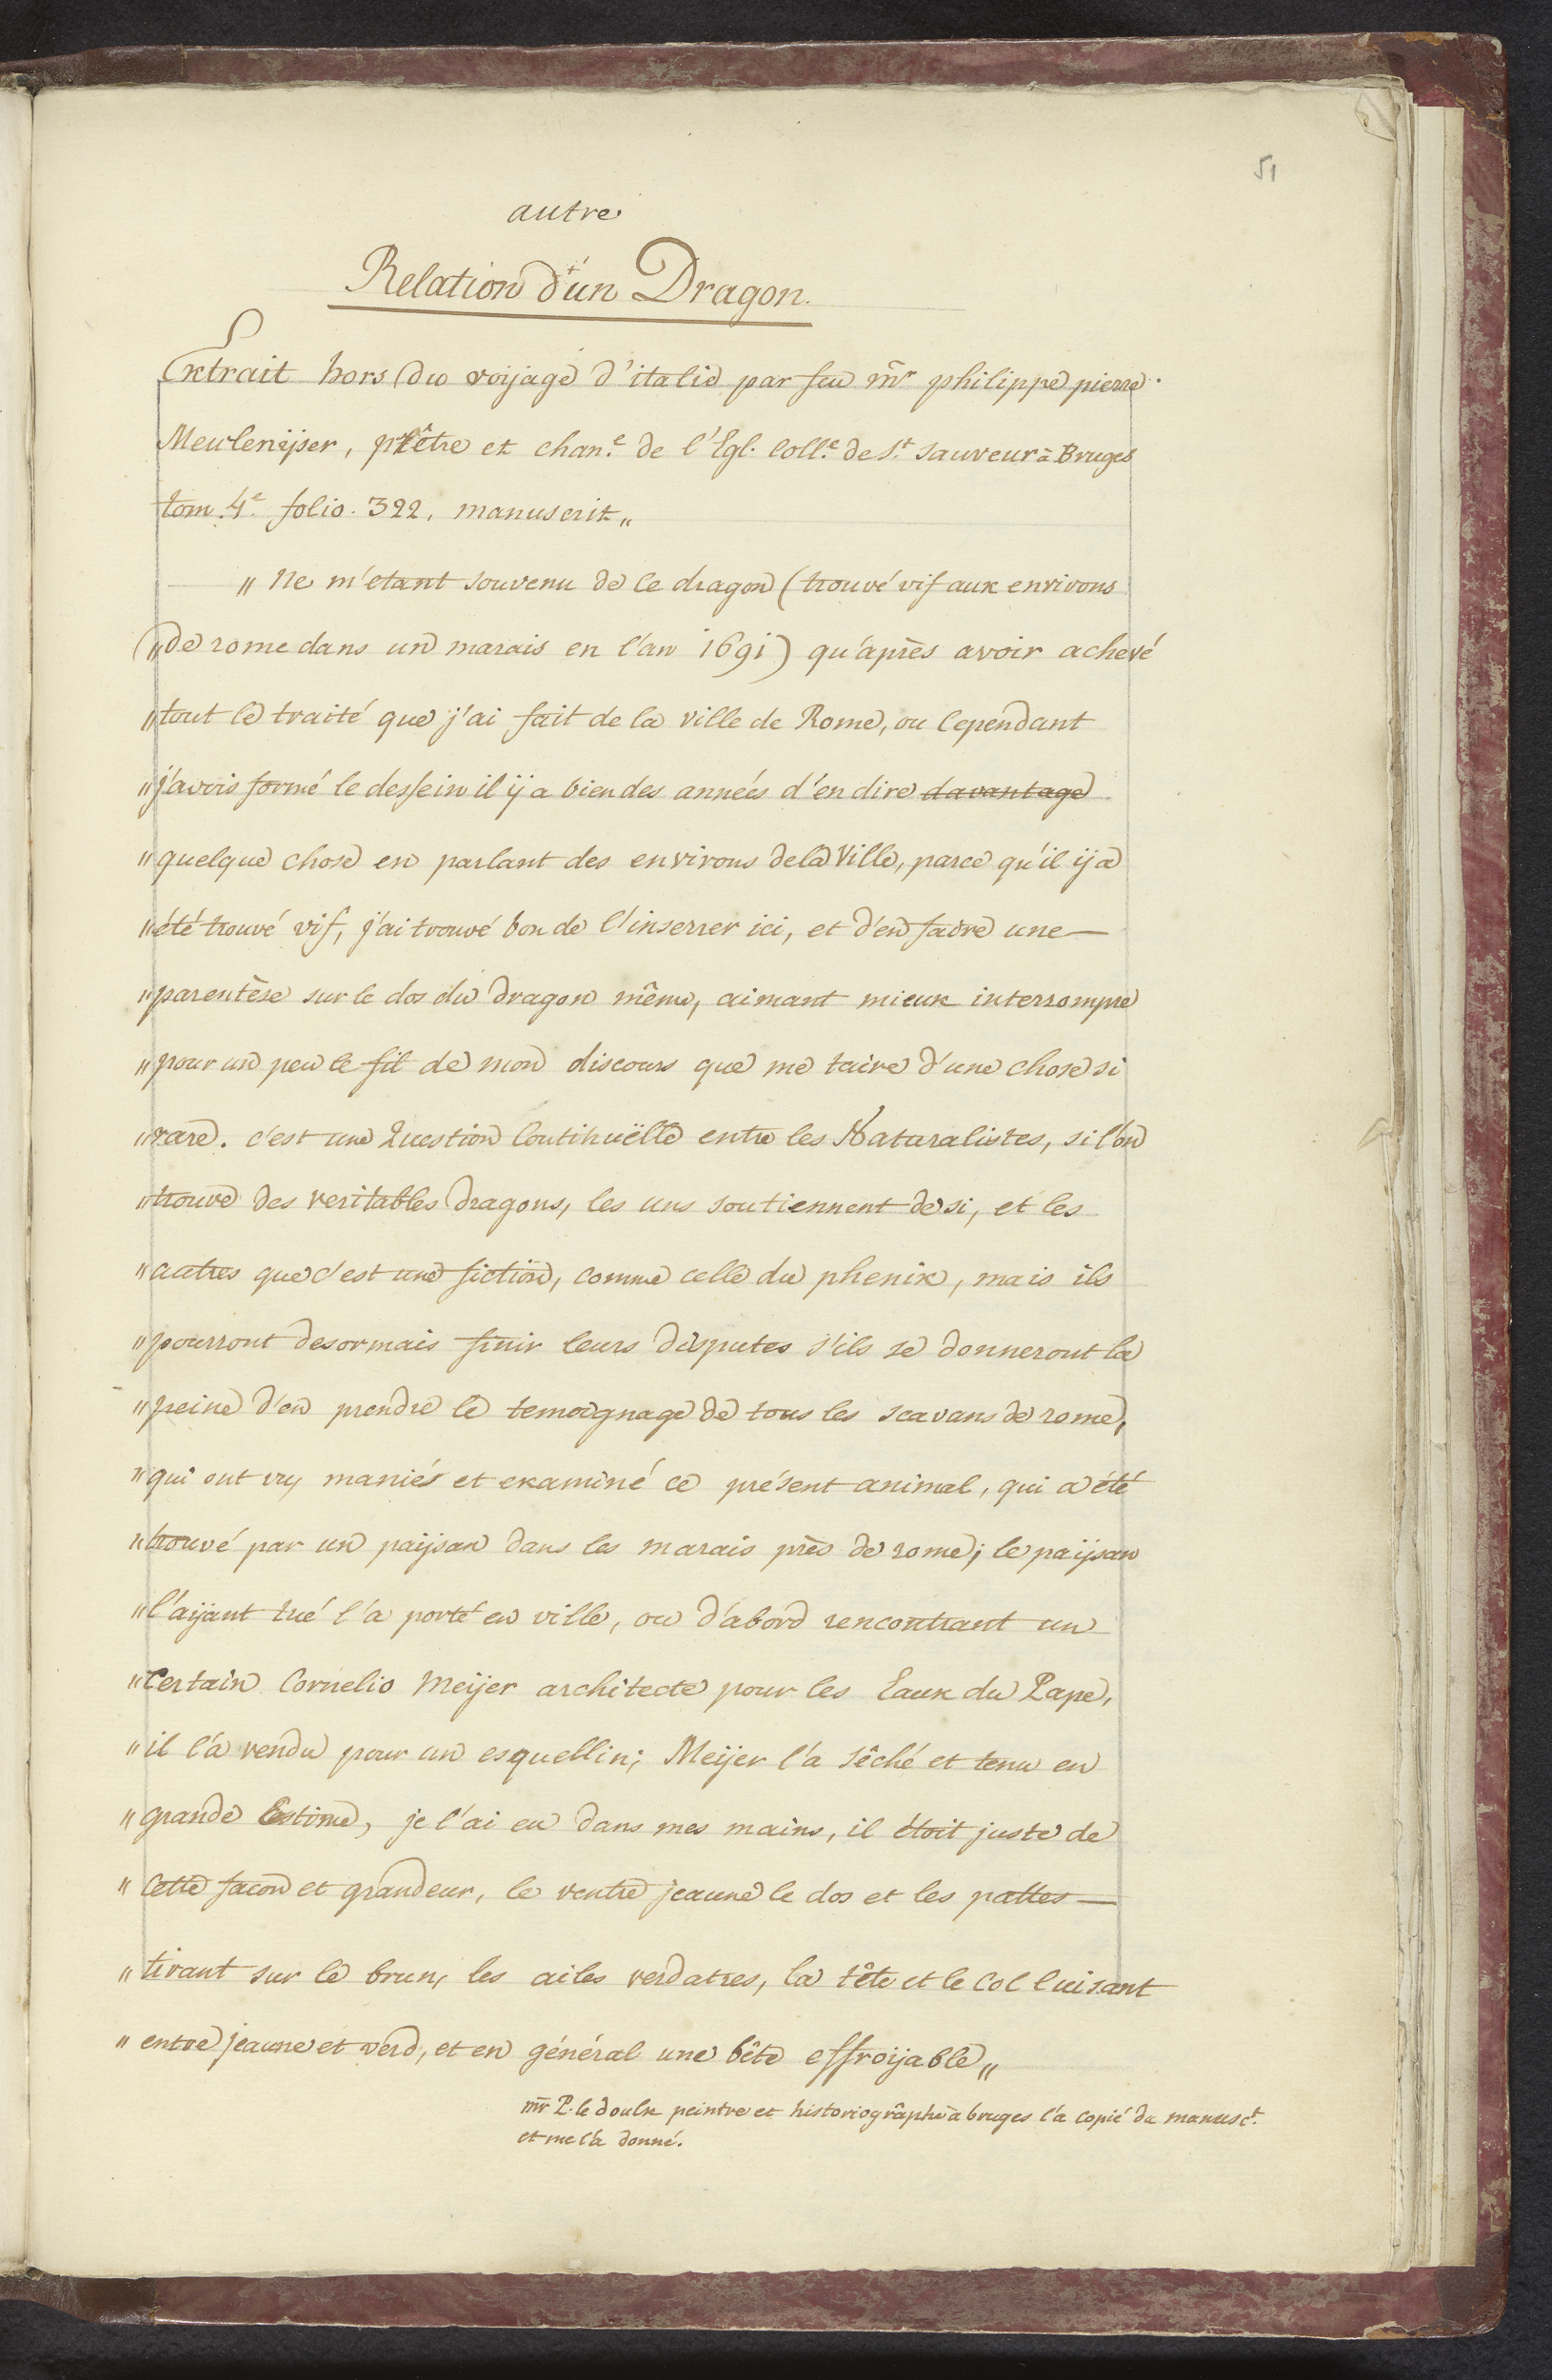 51
autre
Relation d'un Dragon.
Extrait hors du voijage d'italie par feu mr philippe pierre
Meulenijser, prêtre et chan.e de l'Egl. Coll.e de St. Sauveur à Bruges
tom. 4.e folio. 322, manuscrit„
„ Ne m'etant souvenu de ce dragon (trouvé vif aux environs
„ de rome dans un marais en l'an 1691) qu'après avoir achevé
„ tout le traité que j'ai fait de la ville de Rome, ou cependant
„ j'avois formé le dessein il ij a bien des années d'en dire davantage
„ quelque chose en parlant des environs dela Ville, parce qu'il ij a
„ été trouvé vif, j'ai trouvé bon de l'inserrer ici, et d'en faire une
„ parentèse sur le dos du dragon même, aimant mieux interrompre
„ pour un peu le fil de mon discours que me taire d'une chose si
„ rare. c'est une Question Continuëlle entre les Naturalistes, si l'on
„ trouve des veritables dragons, les uns soutiennent de si, et les
„ autres que c'est une fiction, comme celle du phenix, mais ils
„ pourront desormais finir leurs disputes s'ils se donneront la
„ peine d'en prendre le temoignage de tous les scavans de rome,
„ qui ont vu, maniés et examiné ce présent animal, qui a été
„ trouvé par un paijsan dans les marais près de rome; le paijsan
„ l'aijant tué l'a porté en ville, ou d'abord rencontrant un
„ Certain Cornelio Meijer architecte pour les Eaux du Pape,
„ il l'a vendu pour un esquellin; Meijer l'a sêché et tenu en
„ grande Estime, je l'ai eu dans mes mains, il étoit juste de
„ Cette facon et grandeur, le ventre jeaune le dos et les pattes
„ tirant sur le brun, les ailes verdatres, la tête et le Col luisant
„ entre jeaune et verd, et en général une bête effroijable„
mr P. le doulx peintre et historiogrâphe à bruges l'a copié du manusct.
et me l'a donné.